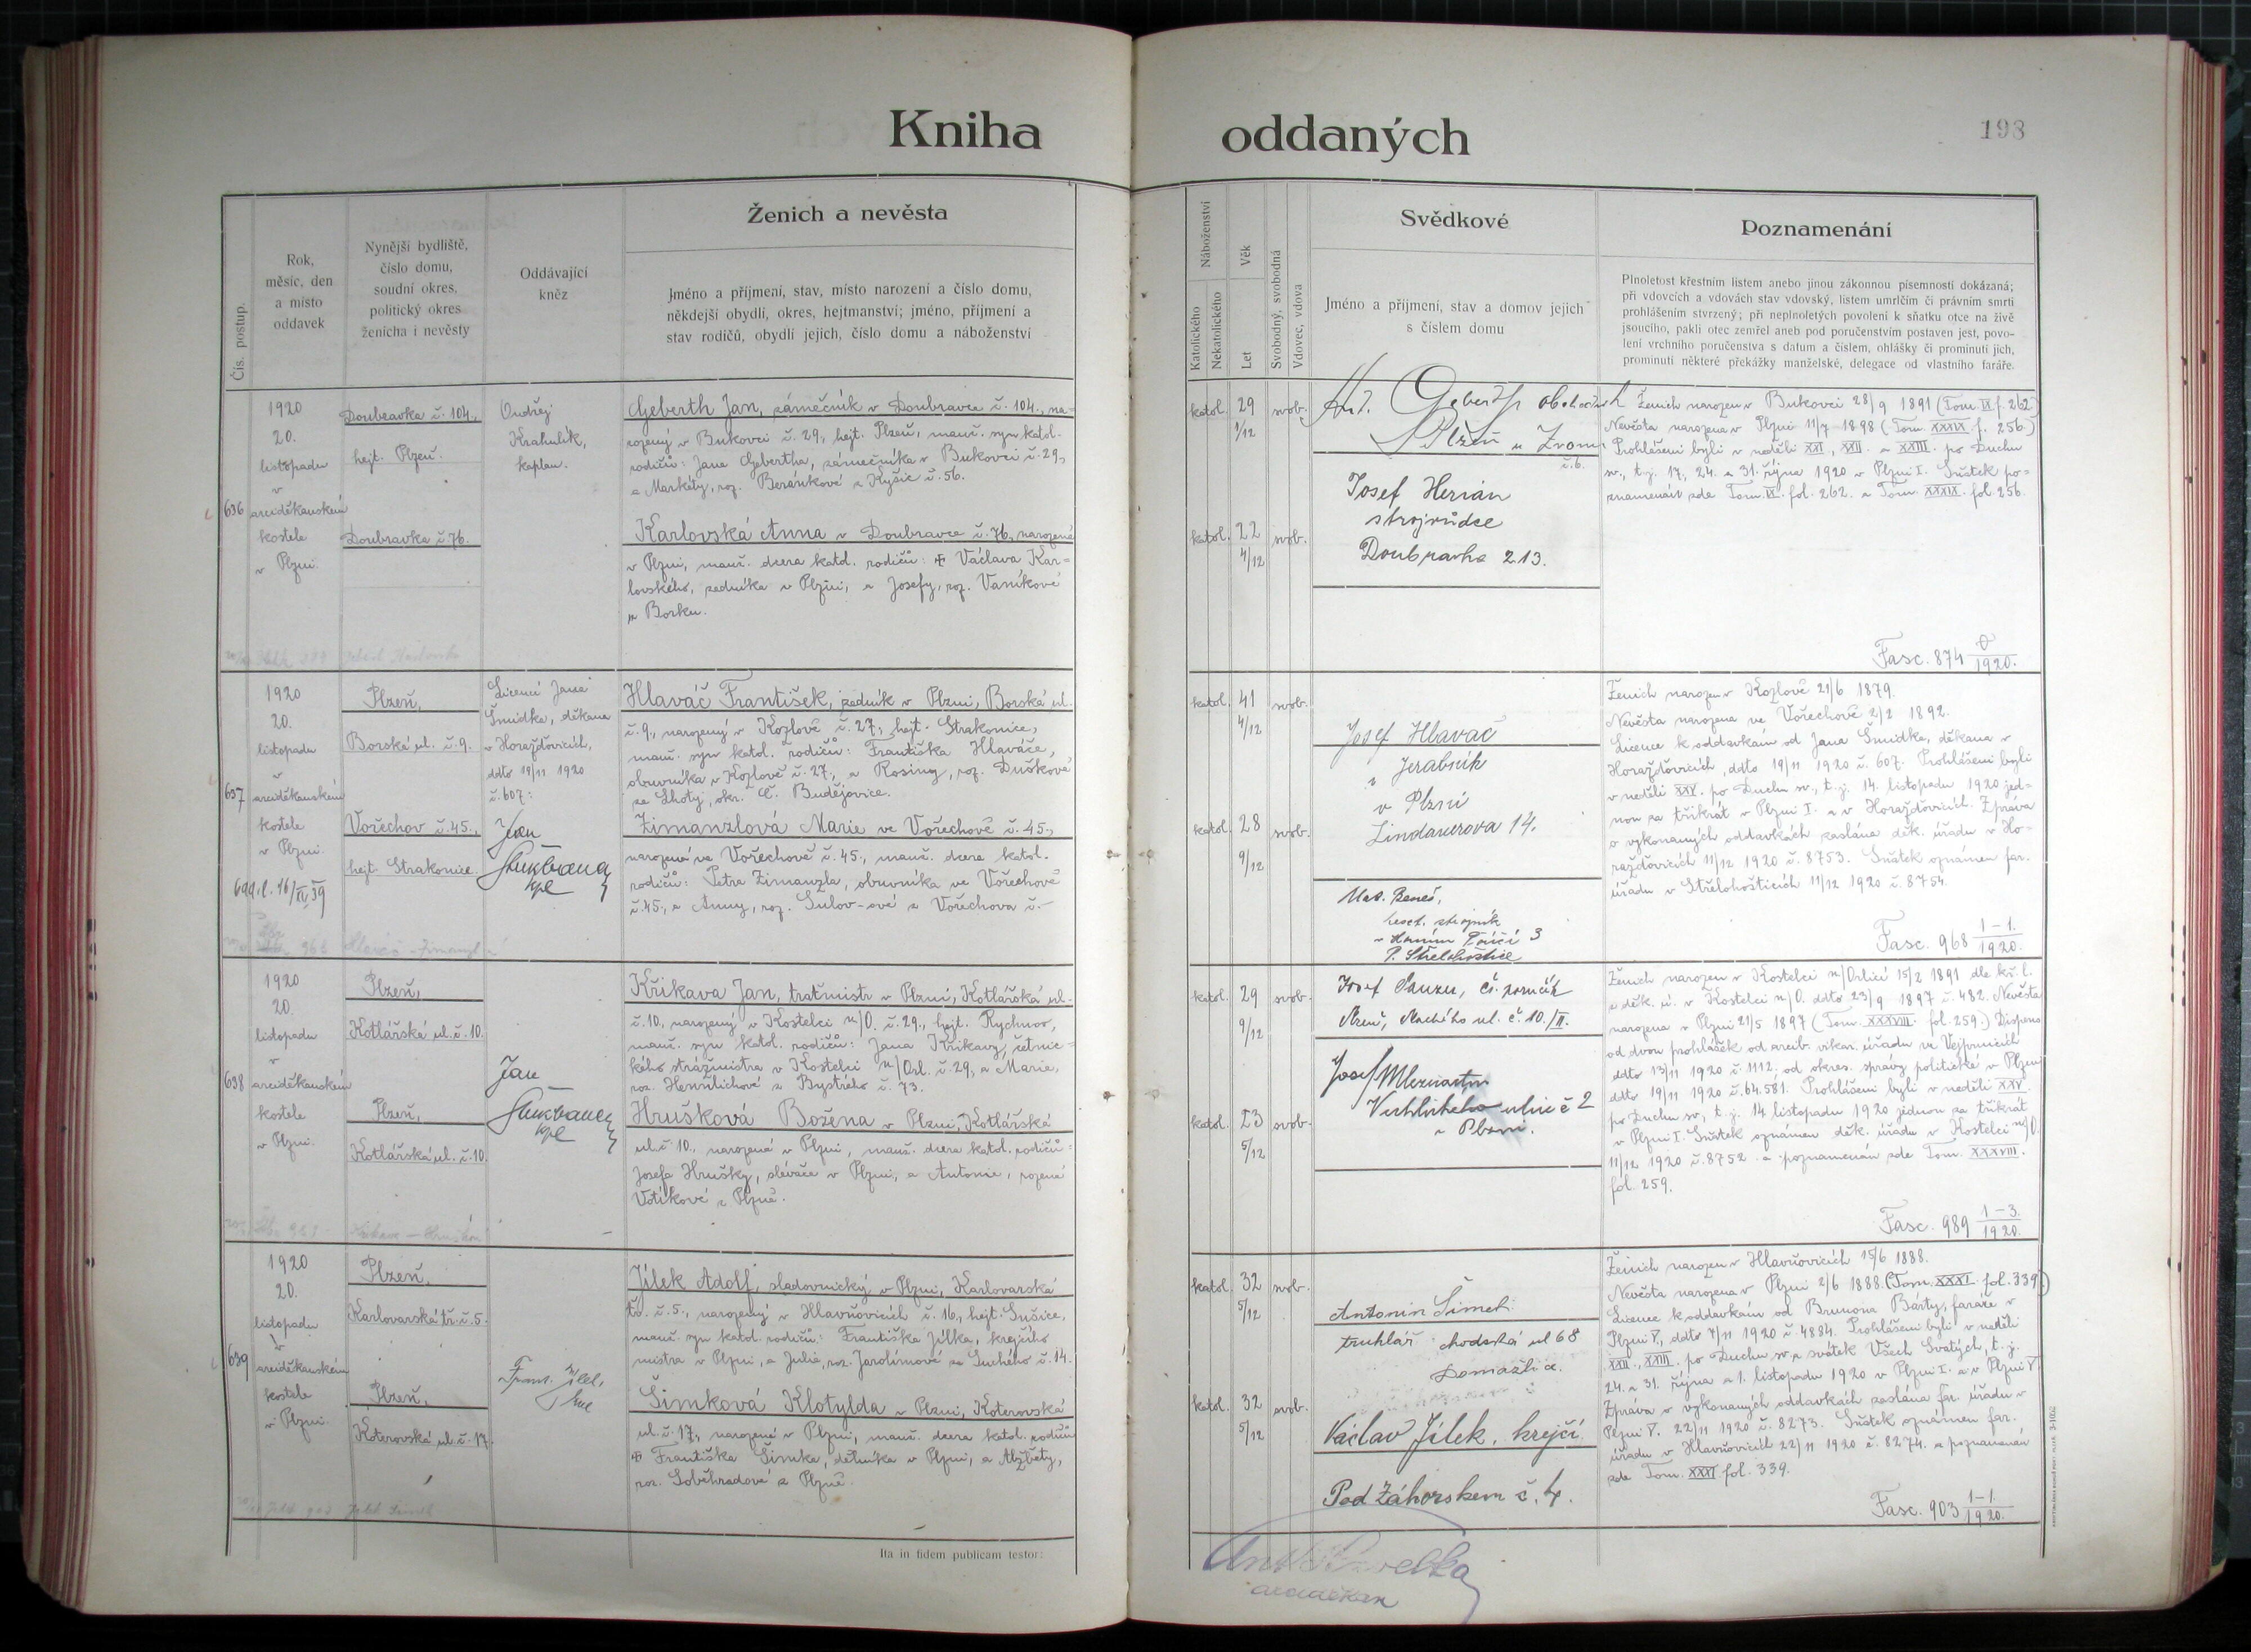 Kniha oddaných
198
Čís. postup.
Rok,
měsíc, den
a místo
oddavek
Nynější bydliště,
číslo domu,
soudní okres,
politický okres
ženicha i nevěsty
Oddávající
kněz
Ženich a nevěsta
Jméno a příjmení, stav, místo narození a číslo domu,
někdejší obydlí, okres, hejtmanství; jméno, příjmení a
stav rodičů, obydlí jejich, číslo domu a náboženství
Náboženství
Katolického
Nekatolického
Věk
Let
Svobodný, svobodná
Vdovec, vdova
Svědkové
Jméno a příjmení, stav a domov jejich
s číslem domu
Poznamenání
Plnoletost křestním listem anebo jinou zákonnou písemností dokázaná;
při vdovcích a vdovách stav vdovský, listem umrlčím či právním smrti
prohlášením stvrzený; při neplnoletých povolení k sňatku otce na živě
jsoucího, pakli otec zemřel aneb pod poručenstvím postaven jest, povo-
lení vrchního poručenstva s datum a číslem, ohlášky či prominutí jich,
prominutí některé překážky manželské, delegace od vlastního faráře.
636
1920
20.
listopadu
v
arciděkanském
kostele
v Plzni.
Doubravka č. 104.,
hejt. Plzeň.
Doubravka č. 76.
Ondřej
Krahulík,
kaplan.
Geberth Jan, zámečník v Doubravce č. 104., na-
rozený v Bukovci č. 29., hejt. Plzeň, manž. syn katol.
rodičů: Jana Gebertha, zámečníka v Bukovci č. 29.,
a Markéty, roz. Beránkové z Kyšic č. 56.
Karlovská Anna v Doubravce č. 76., narozená
v Plzni, manž. dcera katol. rodičů: Václava Kar-
lovského, zedníka v Plzni, a Josefy, roz. Vaníkové
z Borku.
katol. 29 1/12 svob.
katol. 22 4/12 svob.
Ant. Geberth obchodník
Plzeň u Zvonu
č. 6.
Josef Herian
strojvůdce
Doubravka 213.
Ženich narozen v Bukovci 28/9 1891 (Tom. IX f. 262.)
Nevěsta narozena v Plzni 11/7 1898 (Tom. XXXIX f. 256.)
Prohlášeni byli v neděli XXI, XXII. a XXIII. po Duchu
sv., t. j. 17., 24. a 31. října 1920 v Plzni I. Sňatek po-
znamenán zde Tom. IX. fol. 262. a Tom. XXXIX. fol. 256.
Fasc. 874 0/1920.
637
1920
20.
listopadu
v
arciděkanském
kostele
v Plzni.
Plzeň,
Borská ul. č. 9.
Vořechov č. 45.,
hejt. Strakonice.
Licencí Jana
Šmidka, děkana
v Horažďovicích,
ddto 19/11 1920
č. 607:
Jan
kpl
Hlaváč František, zedník v Plzni, Borská ul.
č. 9., narozený v Kozlově č. 27., hejt. Strakonice,
manž. syn katol. rodičů: Františka Hlaváče,
obuvníka v Kozlově č. 27., a Rosiny, roz. Duškové
ze Lhoty, okr. Č. Budějovice.
Zimanzlová Marie ve Vořechově č. 45.,
narozená ve Vořechově č. 45., manž. dcera katol.
rodičů: Petra Zimanzla, obuvníka ve Vořechově
č. 45., a Anny, roz. Sulov-ové z Vořechova č. -
katol. 41 4/12 svob.
katol. 28 9/12 svob.
Josef Hlaváč
Jerabník
v Plzni
Lindauerova 14.
Mat. Beneš,
3
P. Střelohoštice
Ženich narozen v Kozlově 21/6 1879.
Nevěsta narozena ve Vořechově 2/2 1892.
Licence k oddavkám od Jana Šmidka, děkana v
Horažďovicích, ddto 19/11 1920 č. 607. Prohlášeni byli
v neděli XXV. po Duchu sv., t. j. 14. listopadu 1920 jed-
nou za třikrát v Plzni I. a v Horažďovicích. Zpráva
o vykonaných oddavkách zaslána děk. úřadu v Ho-
ražďovicích 11/12 1920 č. 8753. Sňatek oznámen far.
úřadu v Střelohošticích 11/12 1920 č. 8754.
Fasc. 968 1-1./1920.
638
1920
20.
listopadu
v
arciděkanském
kostele
v Plzni.
Plzeň,
Kotlářská ul. č. 10.
Plzeň,
Kotlářská ul. č. 10.
Jan
kpl
Křikava Jan, traťmistr v Plzni, Kotlářská ul.
č. 10., narozený v Kostelci n/O. č. 29., hejt. Rychnov,
manž. syn katol. rodičů: Jana Křikavy, četnic-
kého strážmistra v Kostelci n/Orl. č. 29., a Marie,
roz. z Bystrého č. 73.
Hrušková Božena v Plzni, Kotlářská
ul. č. 10., narozená v Plzni, manž. dcera katol. rodičů:
Josefa Hrušky, slévače v Plzni, a Antonie, rozené
Votíkové z Plzně.
katol. 29 9/12 svob.
katol. 23 5/12 svob.
Josef čs. poručík
Plzeň, Machého ul. č. 10./II.
Josef
Vrchlického ulice č 2
v Plzni.
Ženich narozen v Kostelci n/Orlicí 15/2 1891 dle kř. l.
z děk. ú. v Kostelci n/O. ddto 23/9 1897 č. 482. Nevěsta
narozena v Plzni 21/5 1897 (Tom. XXXVIII. fol. 259.) Dispens
od dvou prohlášek od arcib. vikar. úřadu ve Vejprnicích
ddto 13/11 1920 č. 1112. od okres. správy politické v Plzni
ddto 19/11 1920 č. 64.581. Prohlášeni byli v neděli XXV.
po Duchu sv., t. j. 14 listopadu 1920 jednou za třikrát
v Plzni I. Sňatek oznámen děk. úřadu v Kostelci n/O.
11/12 1920 č. 8752 a poznamenán zde Tom. XXXVIII.
fol. 259.
Fasc. 989 1-3./1920.
639
1920
20.
listopadu
v
arciděkanském
kostele
v Plzni.
Plzeň,
Karlovarská tř. č. 5.
Plzeň,
Koterovská ul. č. 17.
Frant. Jílek,
Jílek Adolf, sladovnický v Plzni, Karlovarská
tř. č. 5., narozený v Hlavňovicích č. 16., hejt. Sušice,
manž. syn katol. rodičů: Františka Jílka, krejčího
mistra v Plzni, a Julie, roz. Jarolímové ze Suchého č. 14.
Šimková Klotylda v Plzni, Koterovská
ul. č. 17., narozená v Plzni, manž. dcera katol. rodičů
Františka Šimka, dělníka v Plzni, a Alžběty,
roz. Soběhradové z Plzně.
katol. 32 5/12 svob.
katol. 32 5/12 svob.
Antonín Šimek
truhlář chodská ul 68
Domažlice.
Václav Jílek, krejčí
Pod Záhorskem č. 4.
Ženich narozen v Hlavňovicích 15/6 1888.
Nevěsta narozena v Plzni 2/6 1888. (Tom. XXXI fol. 339.)
Licence k oddavkám od Brunona Bárty, faráře v
Plzni V, ddto 7/11 1920 č. 4884. Prohlášeni byli v neděli
XXII., XXIII. po Duchu sv. a svátek Všech Svatých, t. j.
24. a 31. října a 1. listopadu 1920 v Plzni I. a v Plzni V.
Zpráva o vykonaných oddavkách zaslána far. úřadu v
Plzni V. 22/11 1920 č. 8273. Sňatek oznámen far.
úřadu v Hlavňovicích 22/11 1920 č. 8274. a poznamenán
zde Tom. XXXI fol. 339.
Fasc. 903 1-1./1920.
Ita in fidem publicam testor:
Ant. Havelka
arciděkan